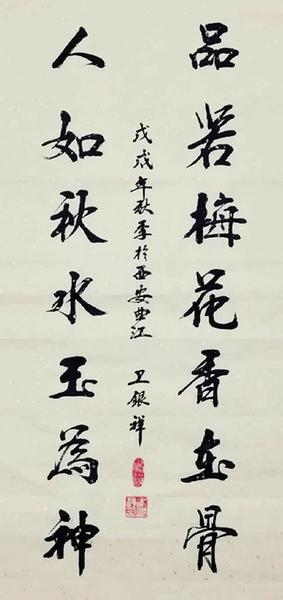 品若梅花香在骨
戊戌年秋季於西安曲江 卫银祥
人如秋水玉為神